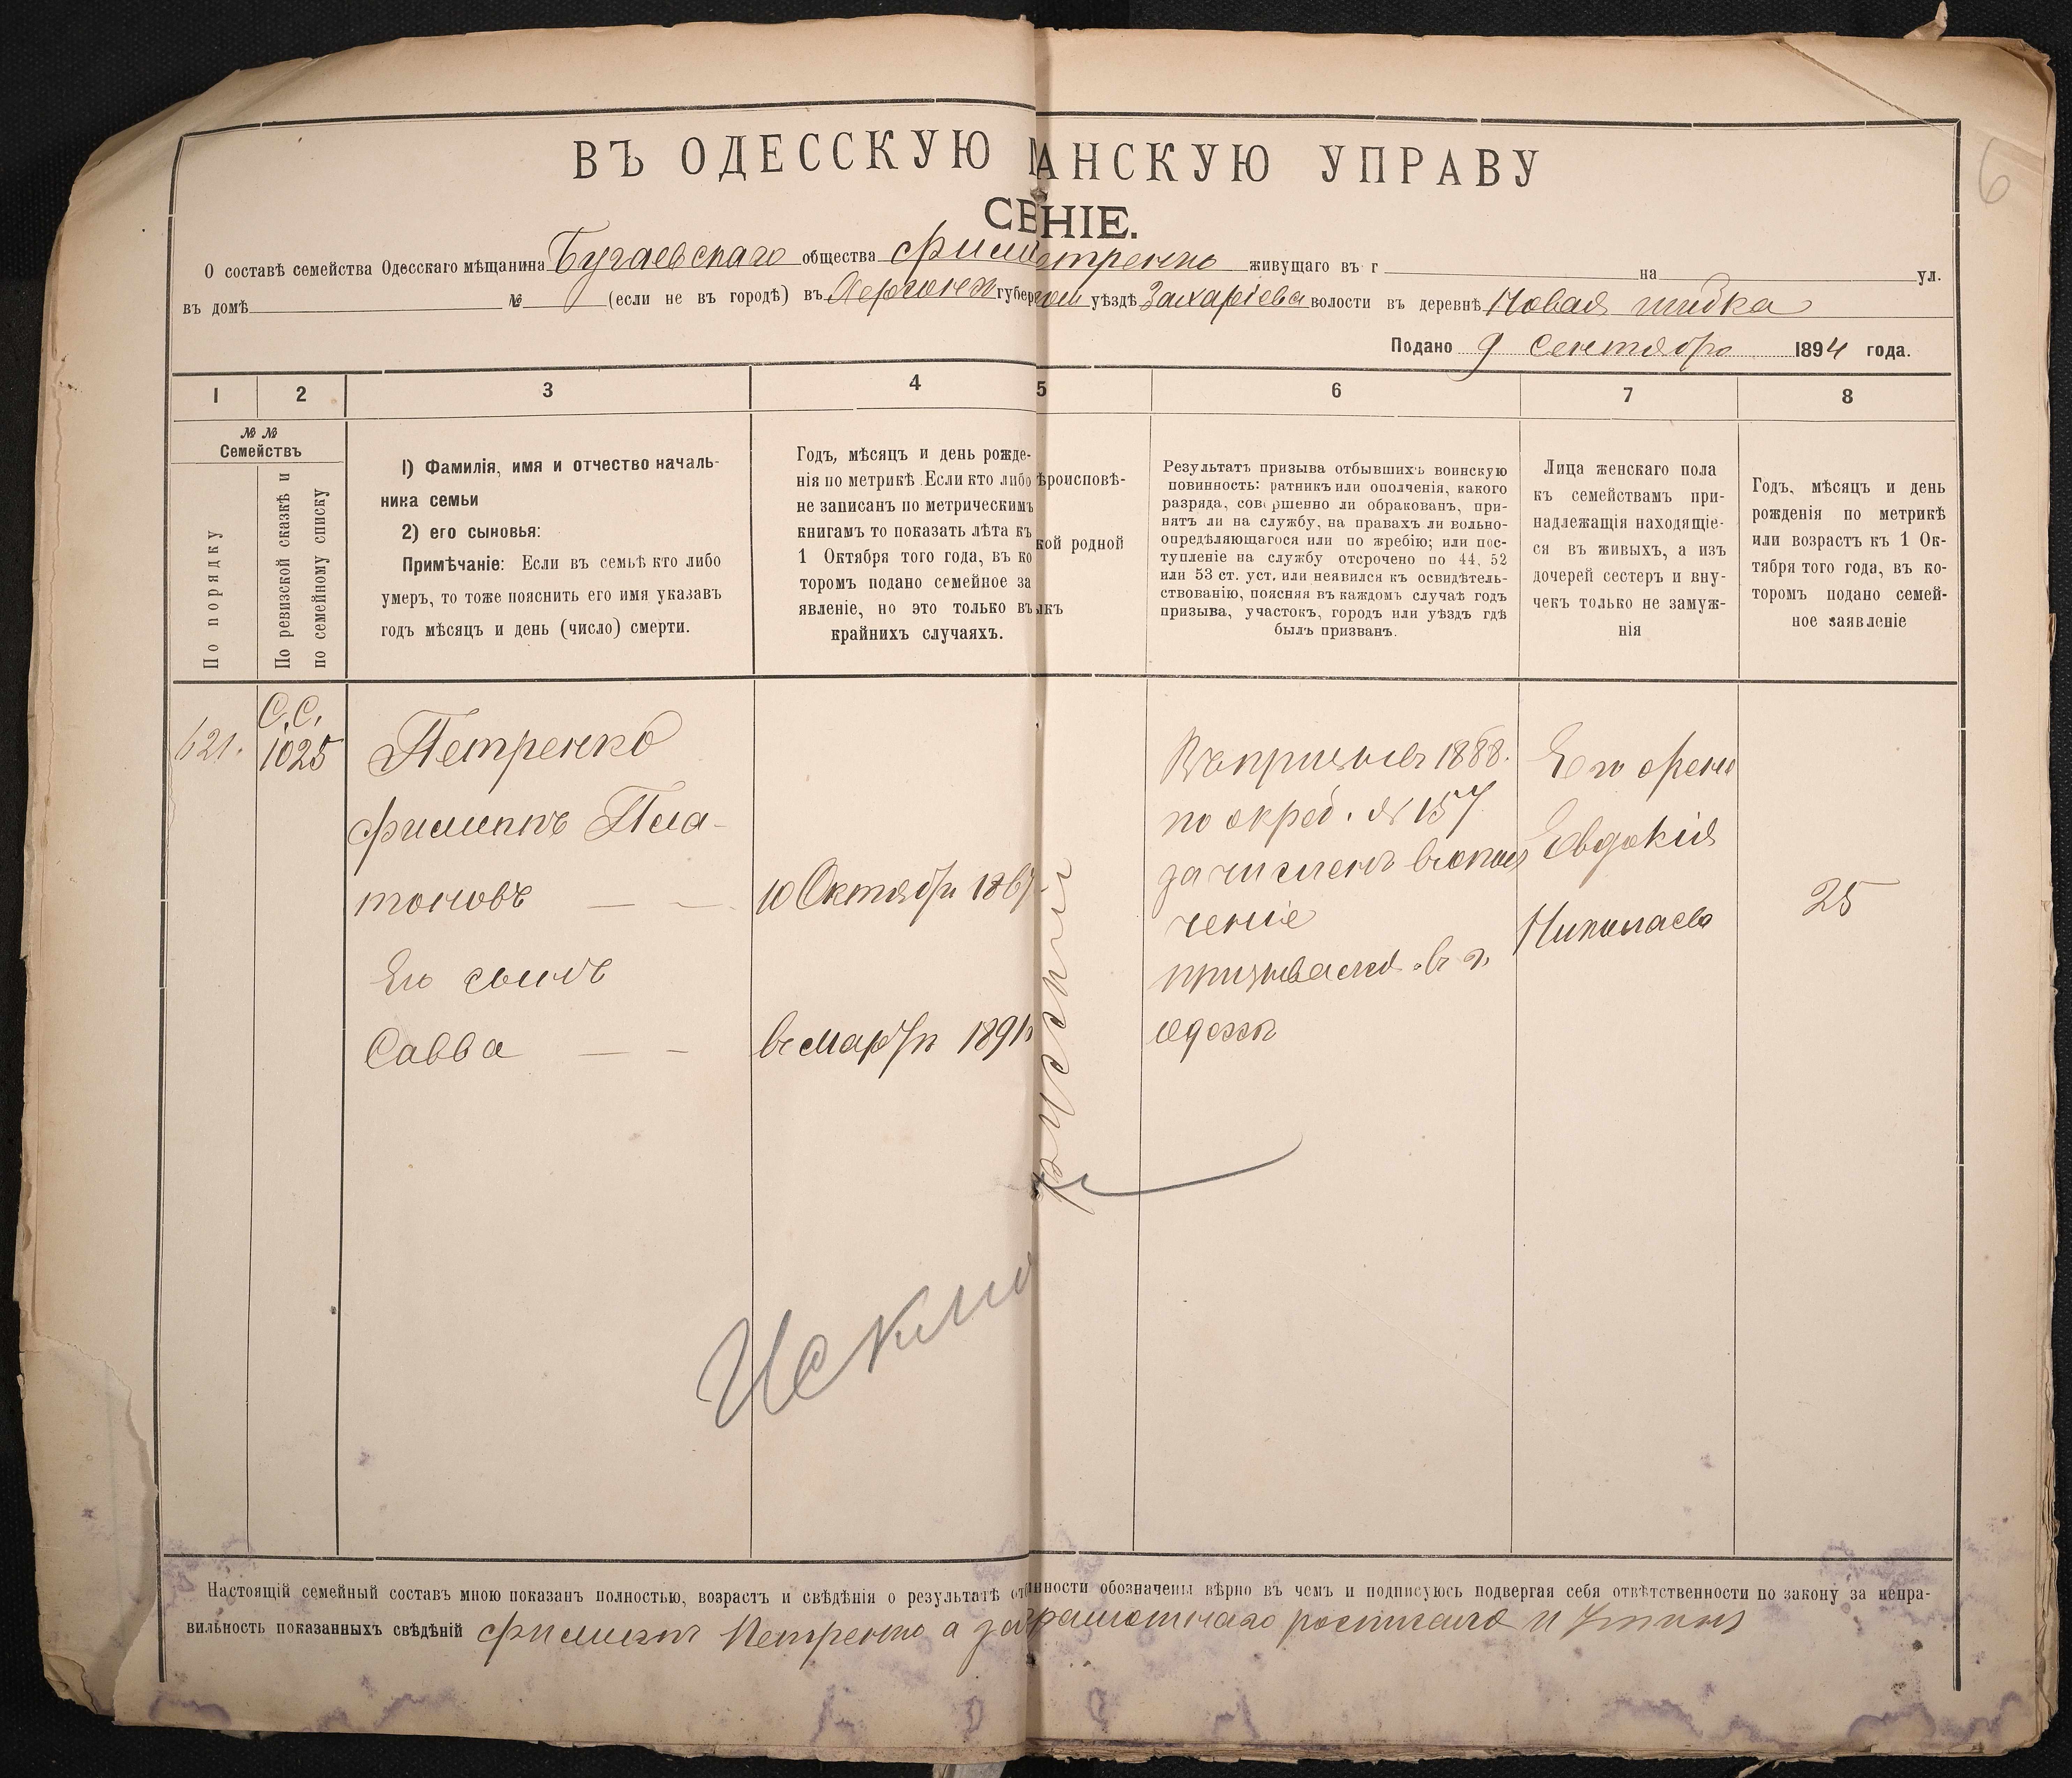 6
ВЪ ОДЕССКУЮ АНСКУЮ УПРАВУ
СЕНІЕ.
О составѣ семейства Одесскаго мѣщанина Бугаевскаго общества Фили етренко живущаго въ г на ул.
въ домѣ № (если не въ городѣ) въ Херсонск губер уѣздѣ Захаріева волости въ деревнѣ Новая
Подано 9 Сентября 1894 года.
1 2 3 4 5 6 7 8
№ №
Семействъ
По порядку
По ревизской сказкѣ и
по семейному списку
1) Фамилія, имя и отчество началь-
ника семьи
2) его сыновья:
Примѣчаніе: Если въ семьѣ кто либо
умеръ, то тоже пояснить его имя указавъ
годъ мѣсяцъ и день (число) смерти.
Годъ, мѣсяцъ и день рожде-
нія по метрикѣ. Если кто либо
не записанъ по метрическимъ
книгамъ то показать лѣта къ
1 Октября того года, въ ко
торомъ подано семейное за
явленіе, но это только въ
крайнихъ случаяхъ.
ѣроисповѣ-
кой родной
ыкъ
Результатъ призыва отбывшихъ воинскую
повинность: ратникъ или ополченія, какого
разряда, совершенно ли обракованъ, при-
нятъ ли на службу, на правахъ ли вольно-
опредѣляющагося или по жребію; или пос-
тупленіе на службу отсрочено по 44, 52
или 53 ст. уст. или неявился къ освидѣтель-
ствованію, поясняя въ каждомъ случаѣ годъ
призыва, участокъ, городъ или уѣздъ гдѣ
былъ призванъ.
Лица женскаго пола
къ семействамъ при-
надлежащія находящіе-
ся въ живыхъ, а изъ
дочерей сестеръ и вну-
чекъ только не замуж-
нія
Годъ, мѣсяцъ и день
рожденія по метрикѣ
или возрастъ къ 1 Ок-
тября того года, въ ко-
торомъ подано семей-
ное заявленіе
621.
С.С.
1025
Петренко
Филиппъ Пла-
тоновъ
Его сынъ
Савва
10 Октября 1867
въ Мартѣ 1891
русскій
Въ призывѣ 1888.
по жреб. № 157
зачисленъ въ опол
ченіе
призывался въ г.
Одессѣ
Его жена
Евдокія
Николаева
25
Исклю
Настоящій семейный составъ мною показанъ полностью, возрастъ и свѣдѣнія о результатѣ от нности обозначены вѣрно въ чемъ и подписуюсь подвергая себя отвѣтственности по закону за непра-
вильность показанныхъ свѣдѣній Филиппъ Петренко а за грамотнаго росписался И